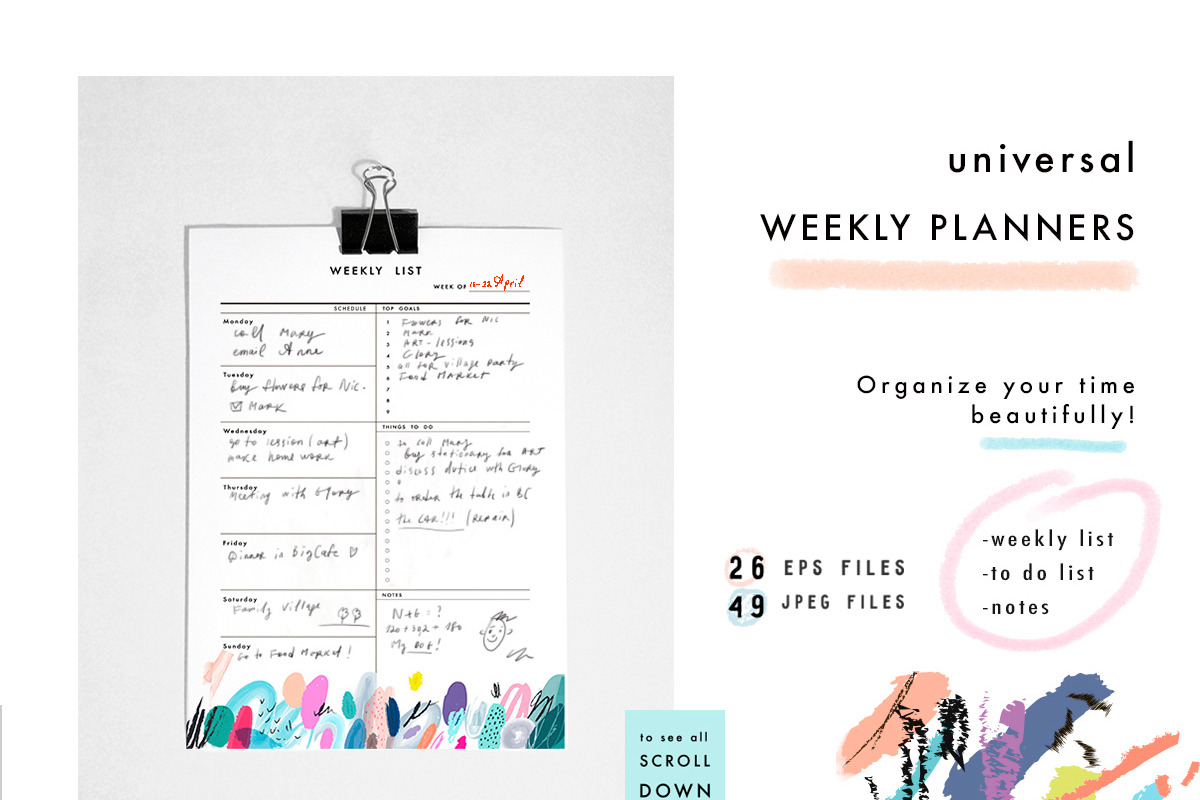 universal
WEEKLY PLANNERS
Organize your time
beautifully!
-weekly list
-to do list
-notes
26 EPS FILES
49 JPEG FILES
to see all
SCROLL
DOWN
WEEKLY LIST
WEEK OF April
SCHEDULE
Monday
call Mary
email Anne
Tuesday
Buy flowers for Nic.
MARK
Wednesday
go to lession (art)
make home work
Thursday
Meeting with Glory
Friday
Dinner in BigCafe
Saturday
Family Village
Sunday
Go to Food Market!
TOP GOALS
1 Flowers for Nic
2 Mark
3 ART - lessions
4 Glory
5 all for village party
6 Food MARKET
7
8
9
THINGS TO DO
to call Mary
Buy stationary for ART
discuss with Glory
to order the table in BC
the CAR!!! (Repair)
NOTES
N+6 = ?
My !